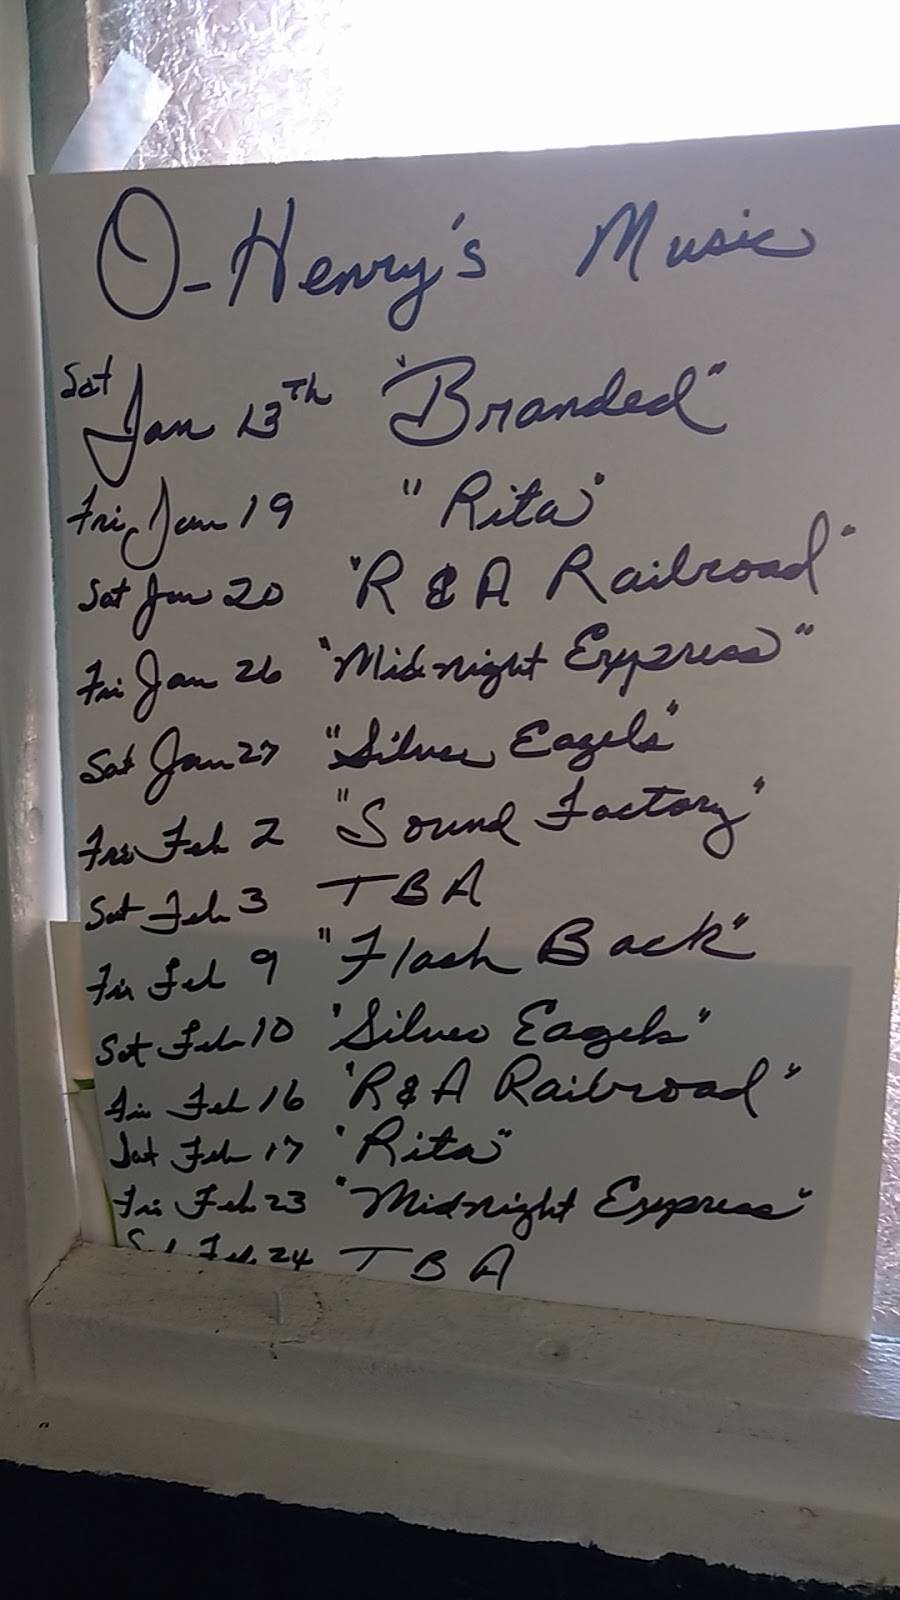 O-Henry's Music
Sat Jan 13Th "Branded"
Fri Jan 19 "Rita"
Sat Jan 20 "R & A Railroad"
Fri Jan 26 "Midnight Express"
Sat Jan 27 "Silver Eagels"
Fri Feb 2 "Sound Factory"
Sat Feb 3 TBA
Fri Feb 9 "Flash Back"
Sat Feb 10 "Silver Eagels"
Fri Feb 16 "R&A Railroad"
Sat Feb 17 "Rita"
Fri Feb 23 "Midnight Express"
Sat Feb 24 TBA